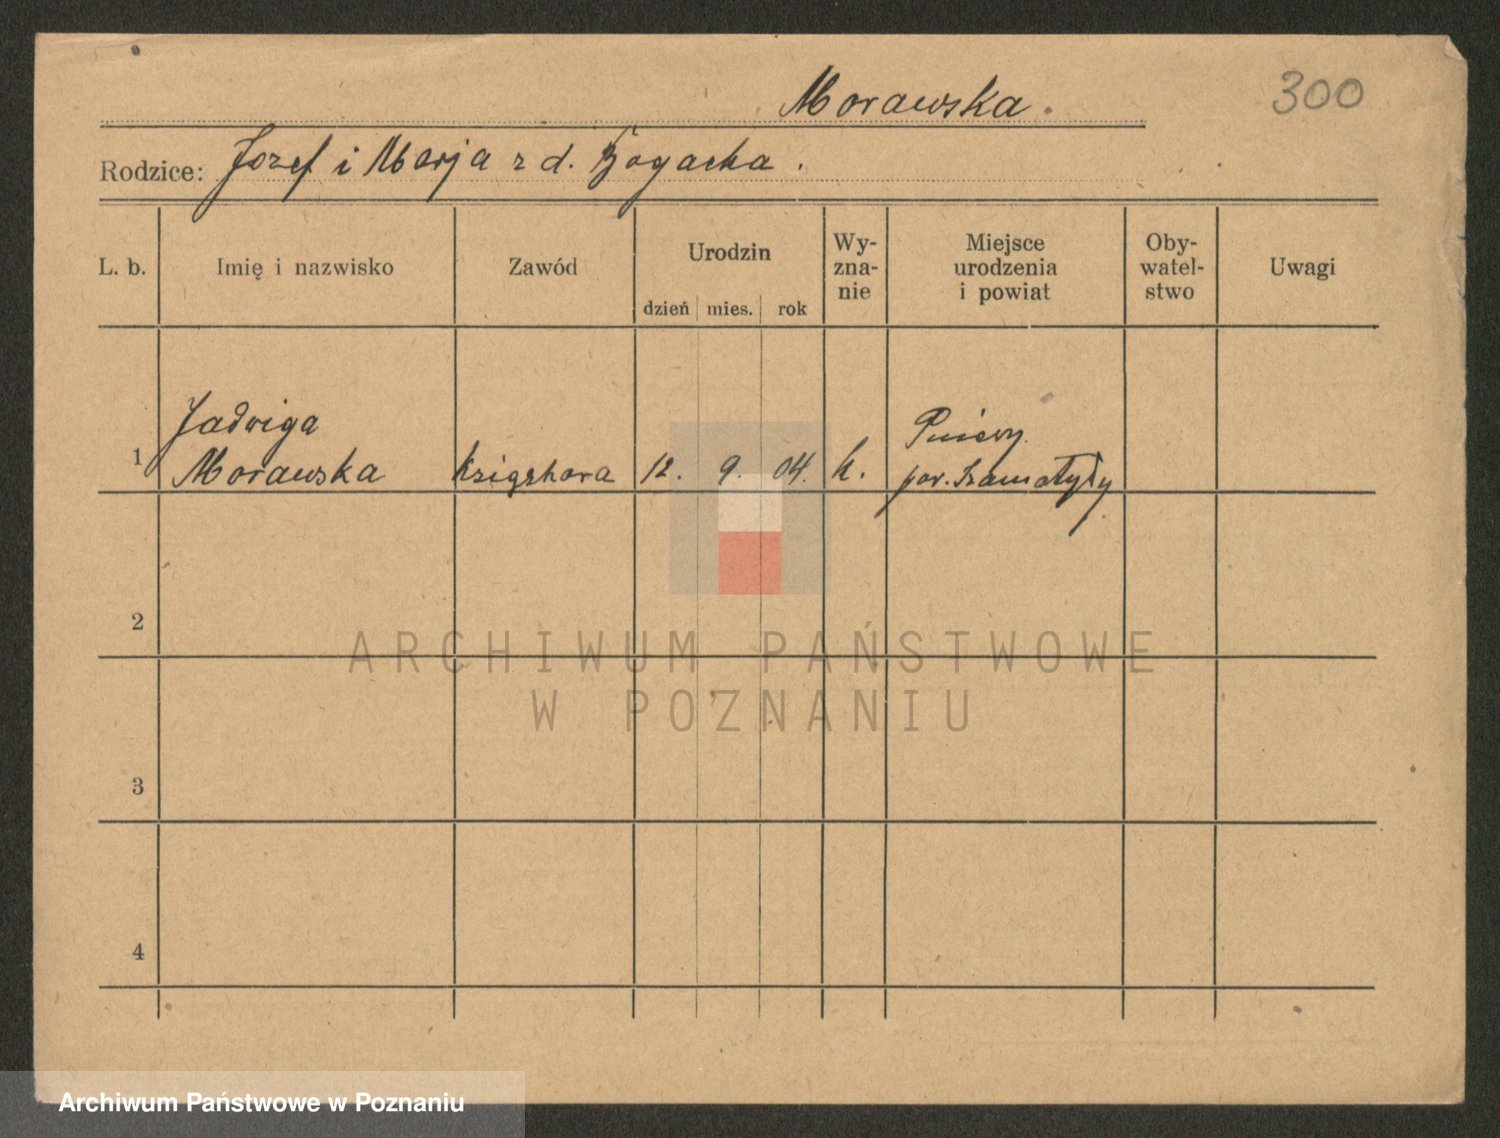 Morawska.
300
Rodzice: Józef i Marja z d. Bogacka.
L. b.
Imię i nazwisko
Zawód
Urodzin
dzień mies. rok
Wy-
zna-
nie
Miejsce
urodzenia
i powiat
Oby-
watel-
stwo
Uwagi
1
Jadwiga
Morawska
12. 9. 04. k.
Pniewy
pow. Szamotuły
2
3
4
ARCHIWUM PAŃSTWOWE
W POZNANIU
Archiwum Państwowe w Poznaniu